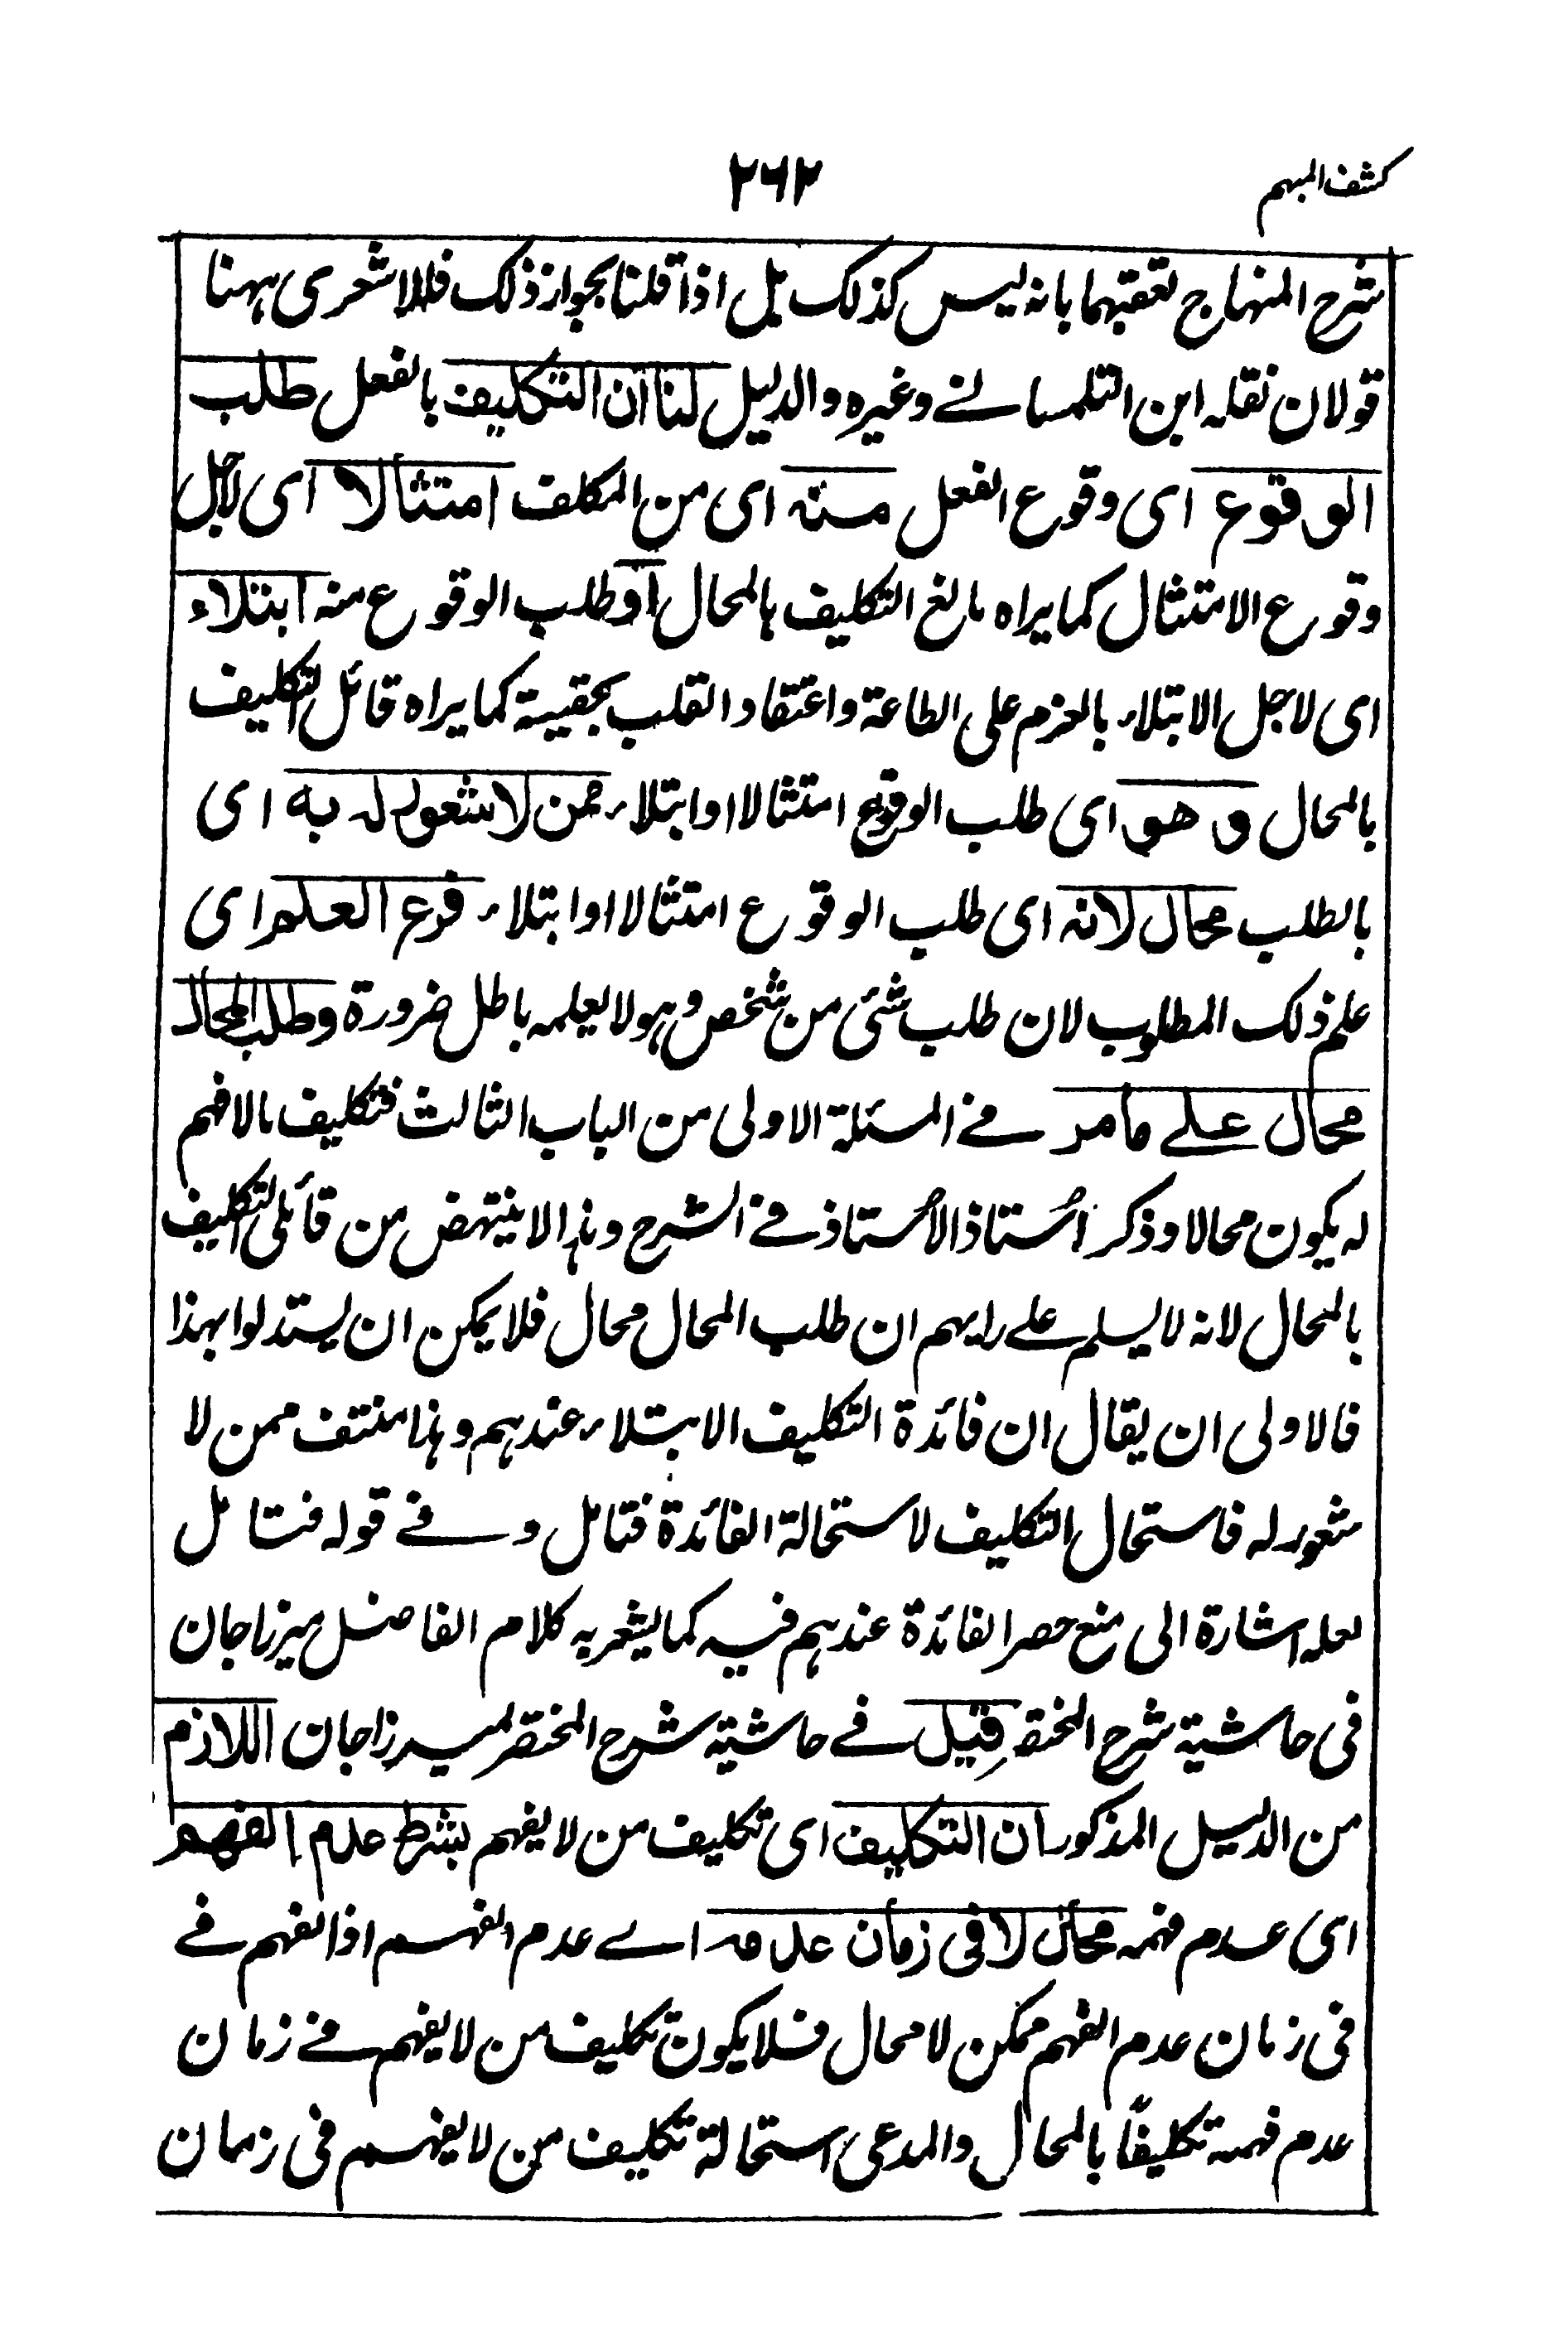 كشف المبهم
٢٦٢
شرح المنهاج تعقبهما بانه ليس كذلك بل اذا قلنا بجواز ذلك فللاشعرى ههنا
قولان نقله ابن التلمسانے وغيره والدليل لنا ان التكليف بالفعل طلب
الوقوع اى وقوع الفعل منه اى من المكلف امتثالا اى لاجل
وقوع الامتثال كما يراه مانع التكليف بالمحال او طلب الوقوع منه ابتلاء
اى لاجل الابتلاء بالعزم على الطاعة واعتقاد القلب بحقيته كما يراه قائل التكليف
بالمحال وهو اى طلب الوقوع امتثالا او ابتلاء ممن لا شعور له به اى
بالطلب محال لانه اى طلب الوقوع امتثالا او ابتلاء فرع العلم اى
علم ذلك المطلوب لان طلب شئ من شخص وهو لا يعلمه باطل ضرورة وطلب المحال
محال علے مامر فے المسئلة الاولى من الباب الثالث فتكليف مالا فهم
له يكون محالا وذكر استاذ الاستاذ فے الشرح وهذا لا ينتهض من قائلى التكليف
بالمحال لانه لا يسلم علے رايهم ان طلب المحال محال فلا يمكن ان يستدلوا بهذا
فالاولى ان يقال ان فائدة التكليف الابتلاء عندهم وهذا منتف ممن لا
شعور له فاستحال التكليف لاستحالة الفائدة فتامل وفے قوله فتامل
لعله اشارة الى منع حصر الفائدة عندهم فيه كما يشعر به كلام الفاضل ميرزاجان
فى حاشية شرح المختصر قيل فے حاشية شرح المختصر لميرزاجان اللازم
من الدليل المذكور ان التكليف اى تكليف من لا يفهم بشرط عدم الفهم
اى عدم فهمه محال لا فى زمان عدمه اے عدم الفهم اذ الفهم فے
فى زمان عدم الفهم ممكن لا محال فلا يكون تكليف من لا يفهم فے زمان
عدم فهمه تكليفًا بالمحال والمدعى استحالة تكليف من لا يفهم فى زمان